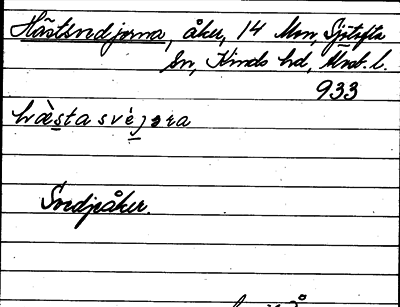 Hästsvedjorna, åker, 14 Mon, Sjötofta
sn, Kinds hd, Älvsb. l.
933
hæ̀stasvéjɔra
Svedjeåker.